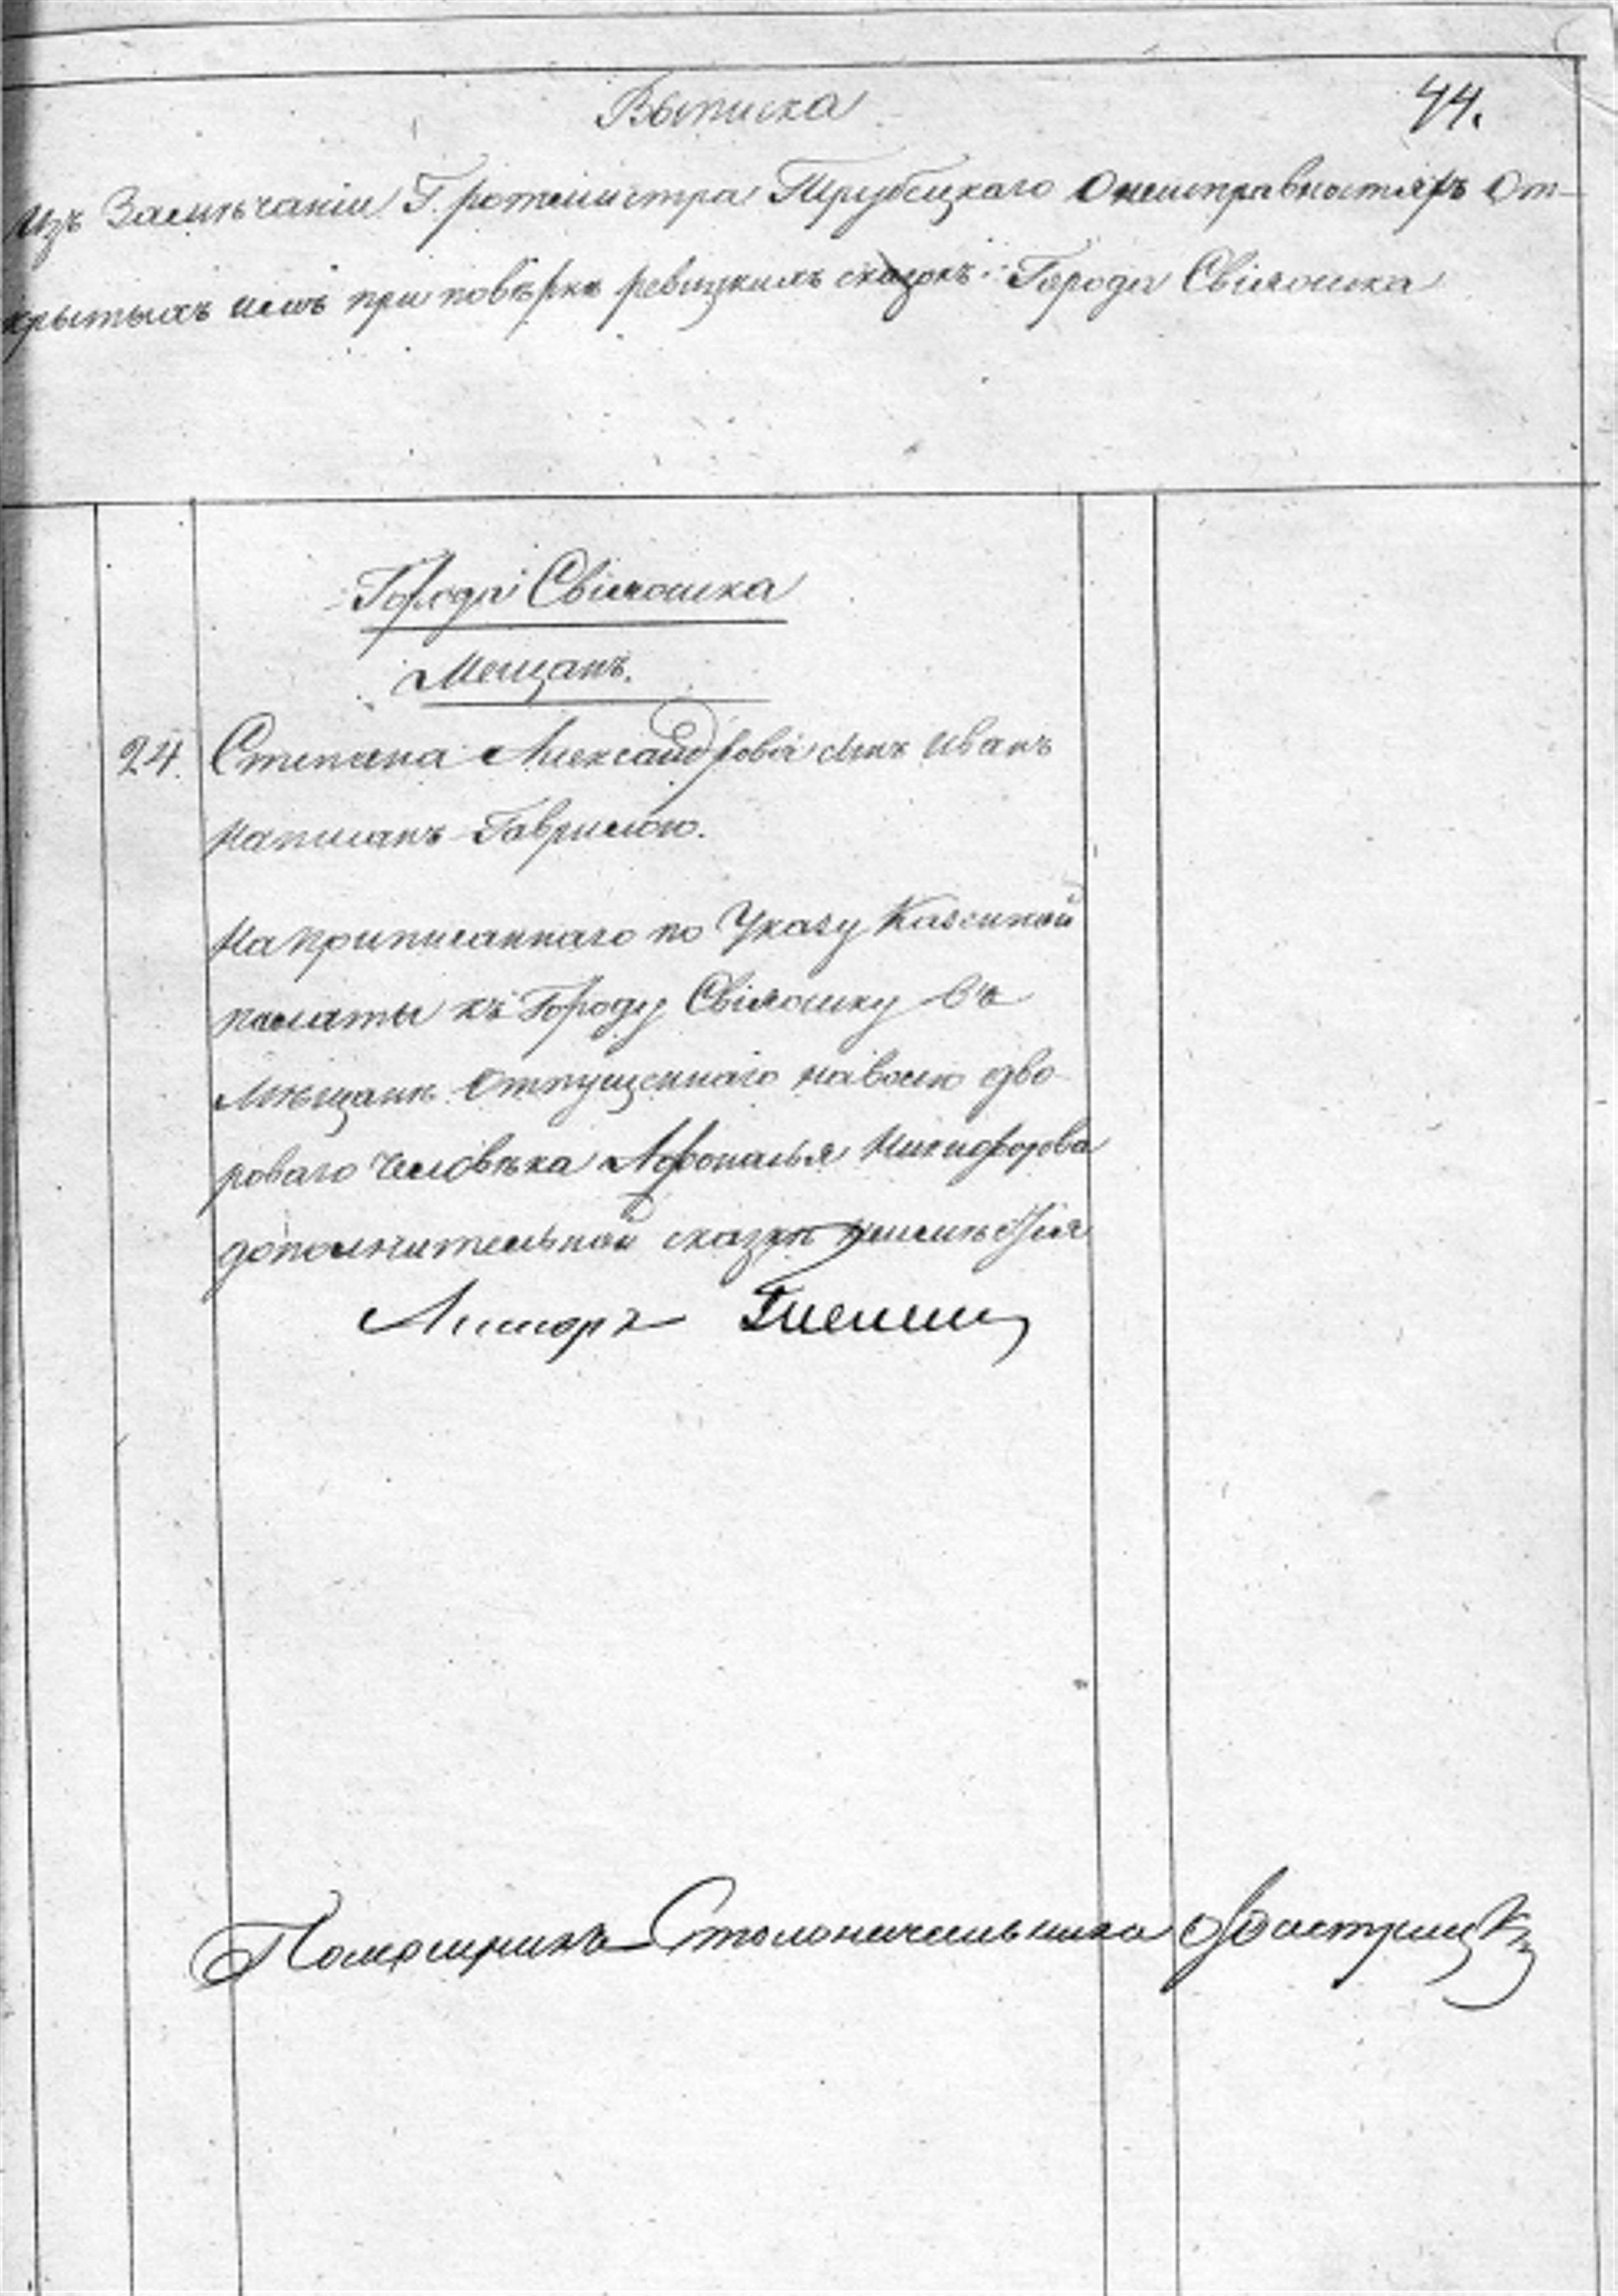 Выписка
44.
Изъ Замѣчанiи Г. ротмистра Трубецкаго Онеисправностяхъ От-
крытыхъ имъ при повѣркѣ ревизкихъ сказокъ. Города Свiяжска
Города Свiяжска
Мещанъ.
24. Степана Александрова сынъ Иванъ
написанъ Гавриломъ.
На приписаннаго по Указу Казенной
палаты къ Городу Свiяжску въ
Мѣщане Отпущеннаго наволю дво-
роваго человѣка Афонасья Никифорова
дополнительной сказки неимѣется
Помощникъ Столоначальника